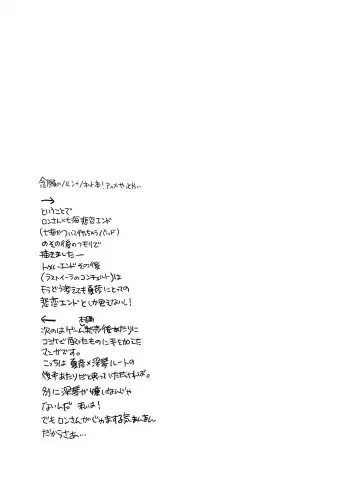 念願のノルン+ノネット本!アニメやったね…
→
ということで
ロンさん×七海悲恋エンド
(七海がついて行っちゃうバッド)
のその後のつもりで
描きましたー
トゥルーエンドその後
(ラストイーラのコンチェルト)は
もうどう考えても夏彦にとっての
悲恋エンドとしか思えないし!
←
本編
次のはゲーム発売後あたりに
コピーで配ったものに手を加えた
マンガです。
こっちは夏彦×深琴ルートの
後半あたりだと思っていただければ。
別に深琴が嫌いなんじゃ
ないんだ 私は!
でもロンさんがじゃまする気まんまん
だからさぁ…